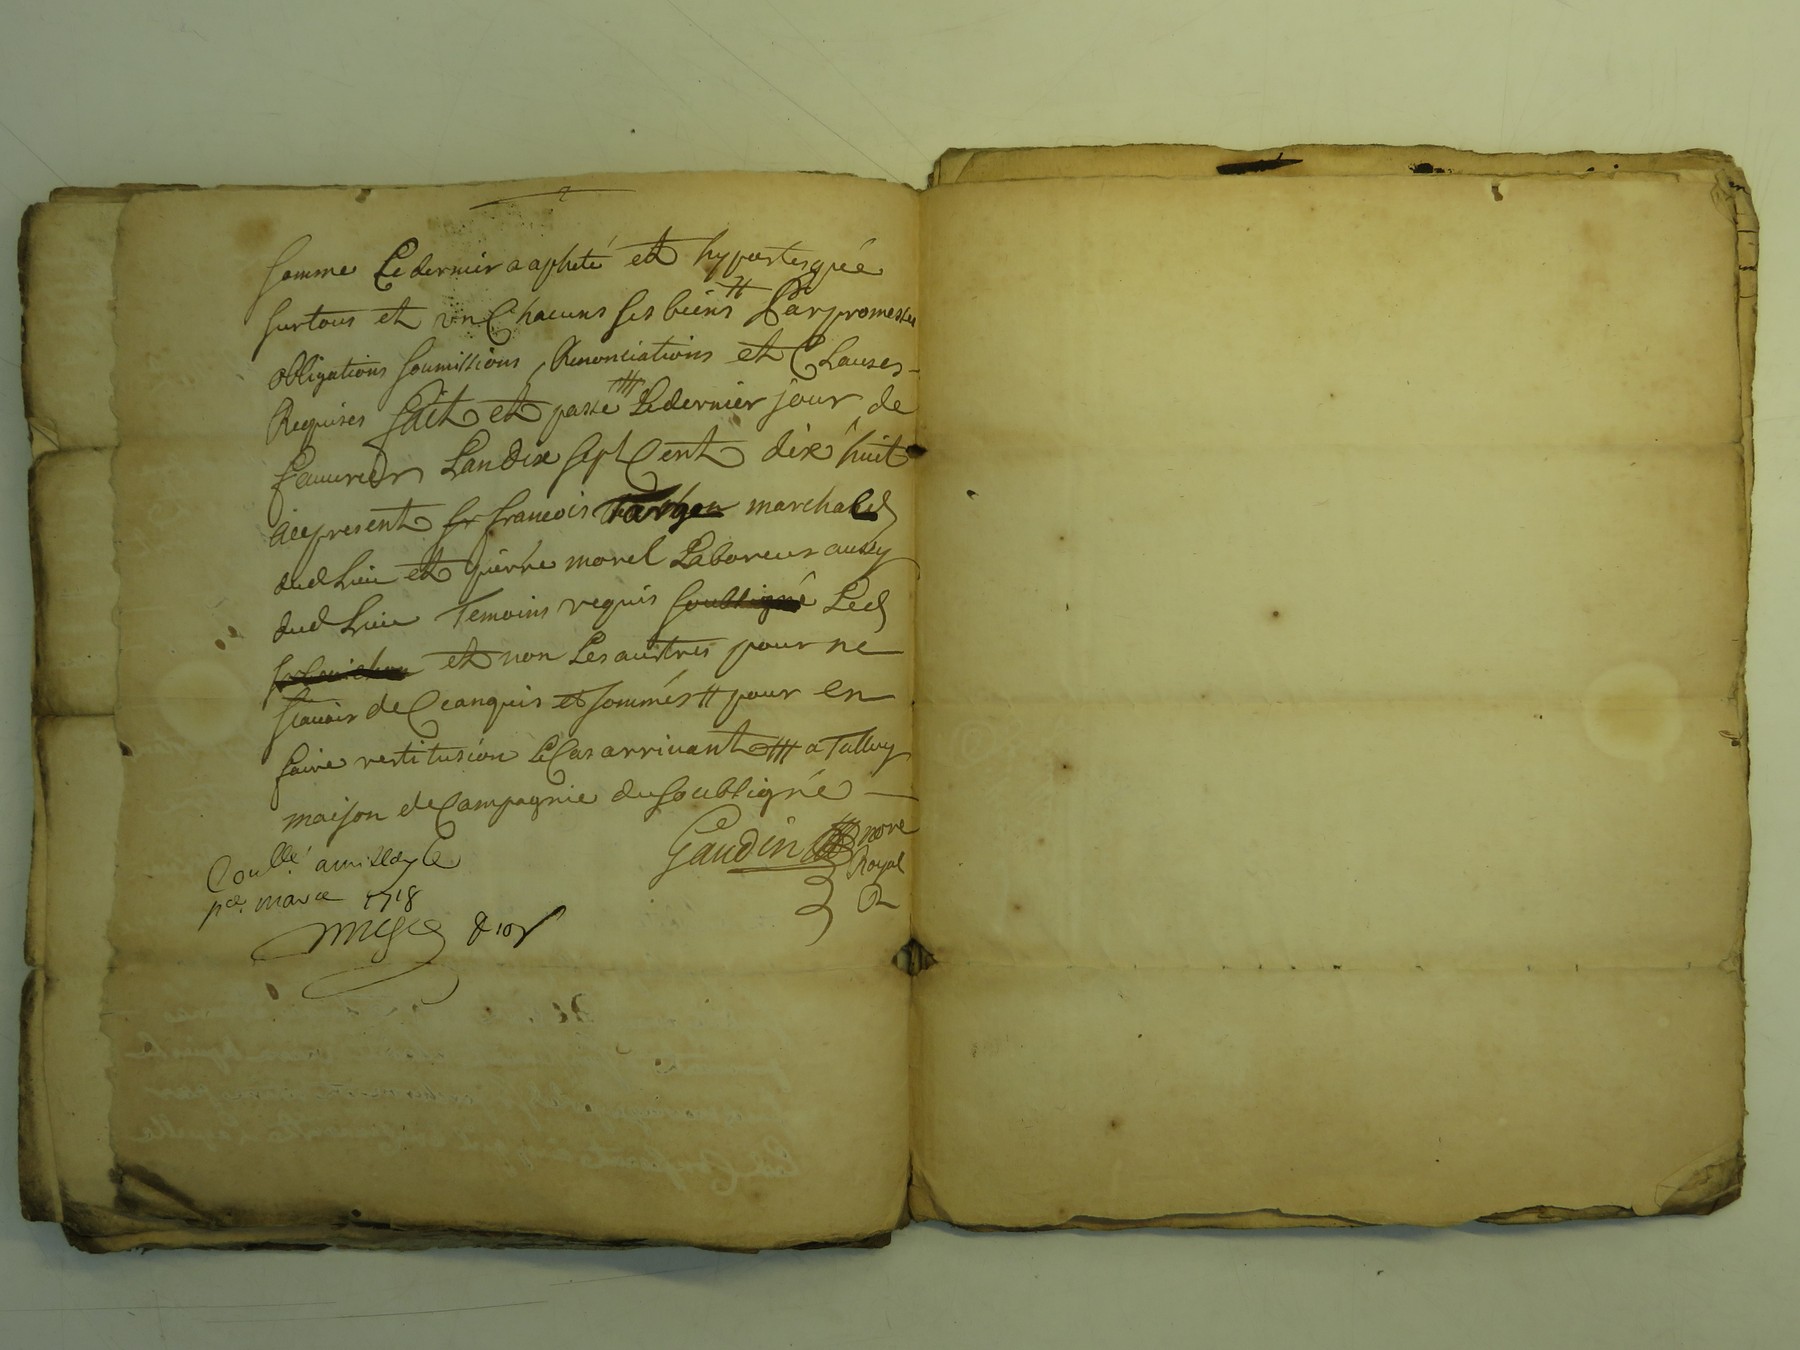 somme Ledernier a apheté et hypotesquée
surtous et un Chacuns ses biens # Par promesses
obligations soumissions, Renonciations et Clauses
Requises fait et passé ### Ledernier jour de
feauvrier Landix sept Cent dix huit
ice present sr francois marchald
dud Lieu et pierre morel Laboreur aussy
dud Lieu Temoins requis soubsigné Led
et non Les auttres pour ne
scavoir de Ceanquis et sommés # pour en
faire restitusion Le Cas arrivant ### a Talluy
maison de Campagnie du soubsigné
Gaudin nore
Royal
Conllé a
per. mars 1718